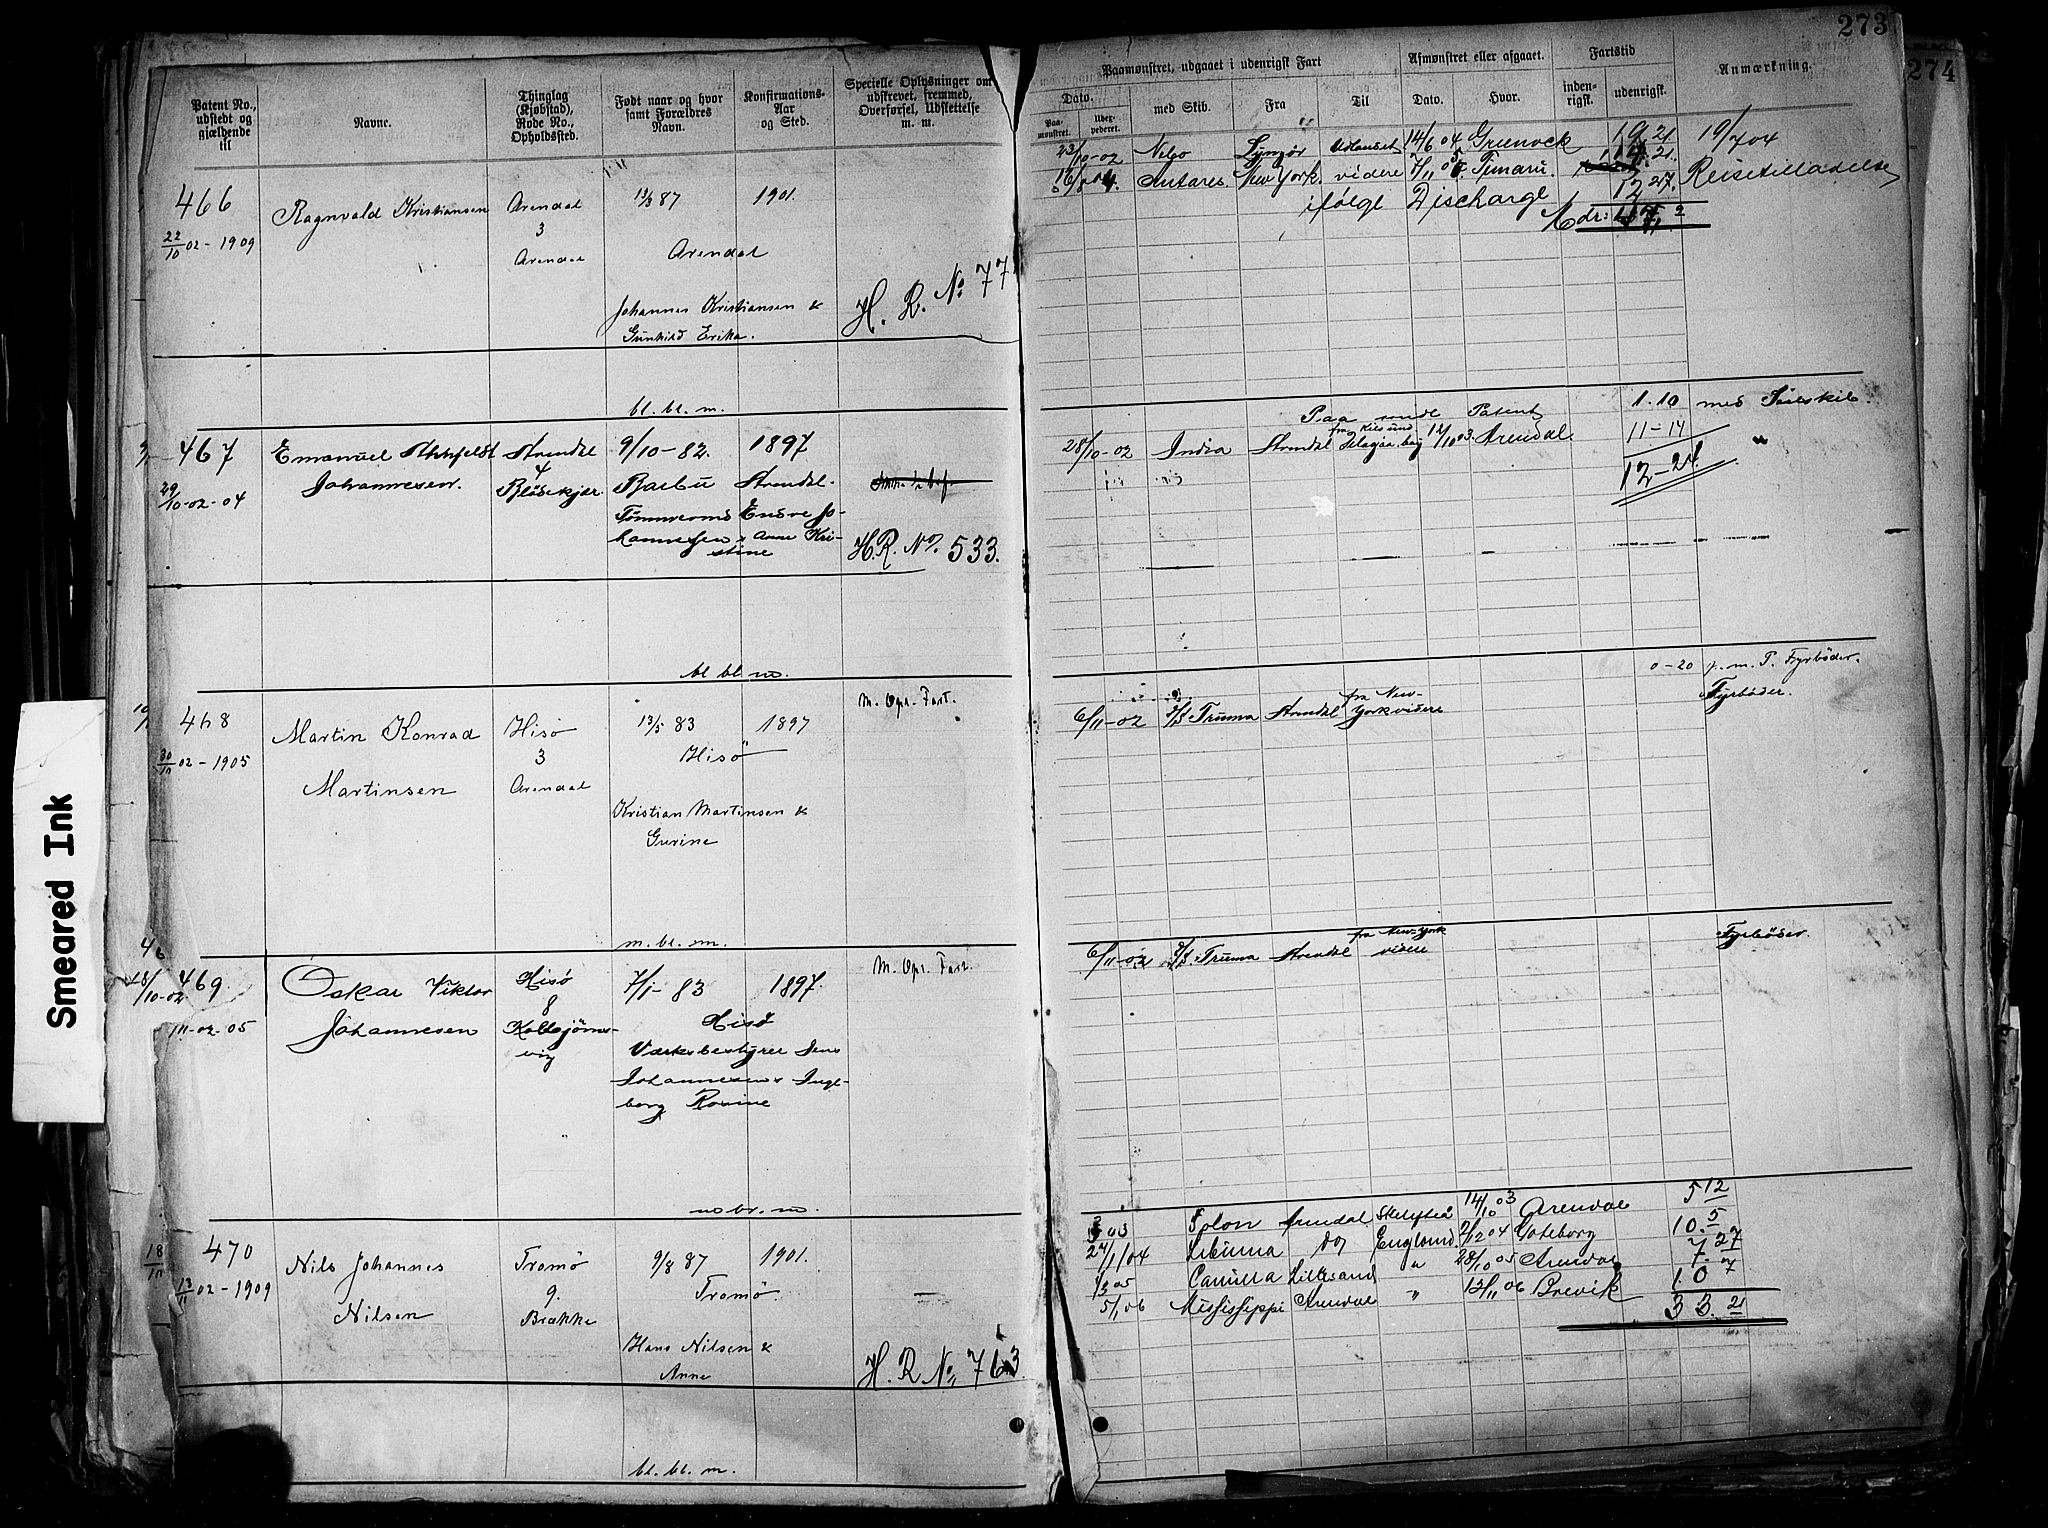 273
274
Smeared Ink
Patent No., udstedt og gjældende til
Navne.
Thinglag (Kjøbstad), Rode No., Opholdssted.
Født naar og hvor samt Forældres Navn.
Konfirmations- Aar og Sted.
Specielle Oplysninger om udskrevet, fremmed, Overførsel, Udslettelse m. m.
Paamønstret, udgaaet i udenrigsk Fart
Dato.
Paa- mønstret.
Udex- pederet.
med Skib.
Fra
Til
Afmønstret eller afgaaet.
Dato.
Hvor.
Fartstid
inden- rigsk.
udenrigsk.
Anmærkning.
466
22/10 02 - 1909
Ragnvald Kristiansen
Arendal
3
Arendal
13/3 87
1901.
Arendal
Johannes Kristiansen &
Gunhild Erika.
H. R. No. 77
bl. bl. m.
23/10-02 Lyngør Udlandet 14/6 04 Greenock 19 21 19/7 04
Antares New York. videre 7/11 05 Timaru. Reisetilladelse
ifølge Discharge 12 27.
Mdr:
467
29/10-02-04
Emanuel
Johannesen.
Arendal
4
Blødekjær
9/10-82.
1897
Barbu Arendal.
Tømmermd Endre Jo-
hannesen & Anne Kri-
stine
H.R. No. 533.
bl bl. m.
Paa sidste Patent 1.10 med Seilskib
28/10-02 India Arendal Delagoa bay 12/10 03. Arendal. 11-14 "
12-24
468
30/10 02 - 1905
Martin Konrad
Martinsen
Hisø
3
Arendal
13/5 83
1897
Hisø
Kristian Martinsen &
Gurine
M. Opr. Fart.
m. bl. m.
0-20 p. m. P. Fyrbøder.
6/11-02 D/S Truma Arendal fra New-
York videre Fyrbøder.
469
Oskar Viktor
Johannesen
Hisø
8
Kolbjørns-
vig
11-02-05
7/1-83
1897.
Hisø
Værksbestyrer Jens
Johannesen & Inge-
borg Rosine
M. Opr. Fart.
6/11-02 D/S Truma Arendal fra New-York
videre Fyrbøder.
470
18/11
13/11 02 - 1909
Nils Johannes
Nilsen
Tromø
9.
Brække
9/8 87
1901.
Tromø
Hans Nilsen &
Anne
H. R. No. 763
bl. bl. m.
03 Solon Arendal Skelefteå 14/10 03 Arendal 5 12
27/1/04 do England 7/12 04 Gøteborg 10. 5
05 Camilla Lillesand " 28/10 05 Arendal 7. 27
5/1 06 Mississippi Arendal " 12/11 06 Brevik 10 7
33. 21